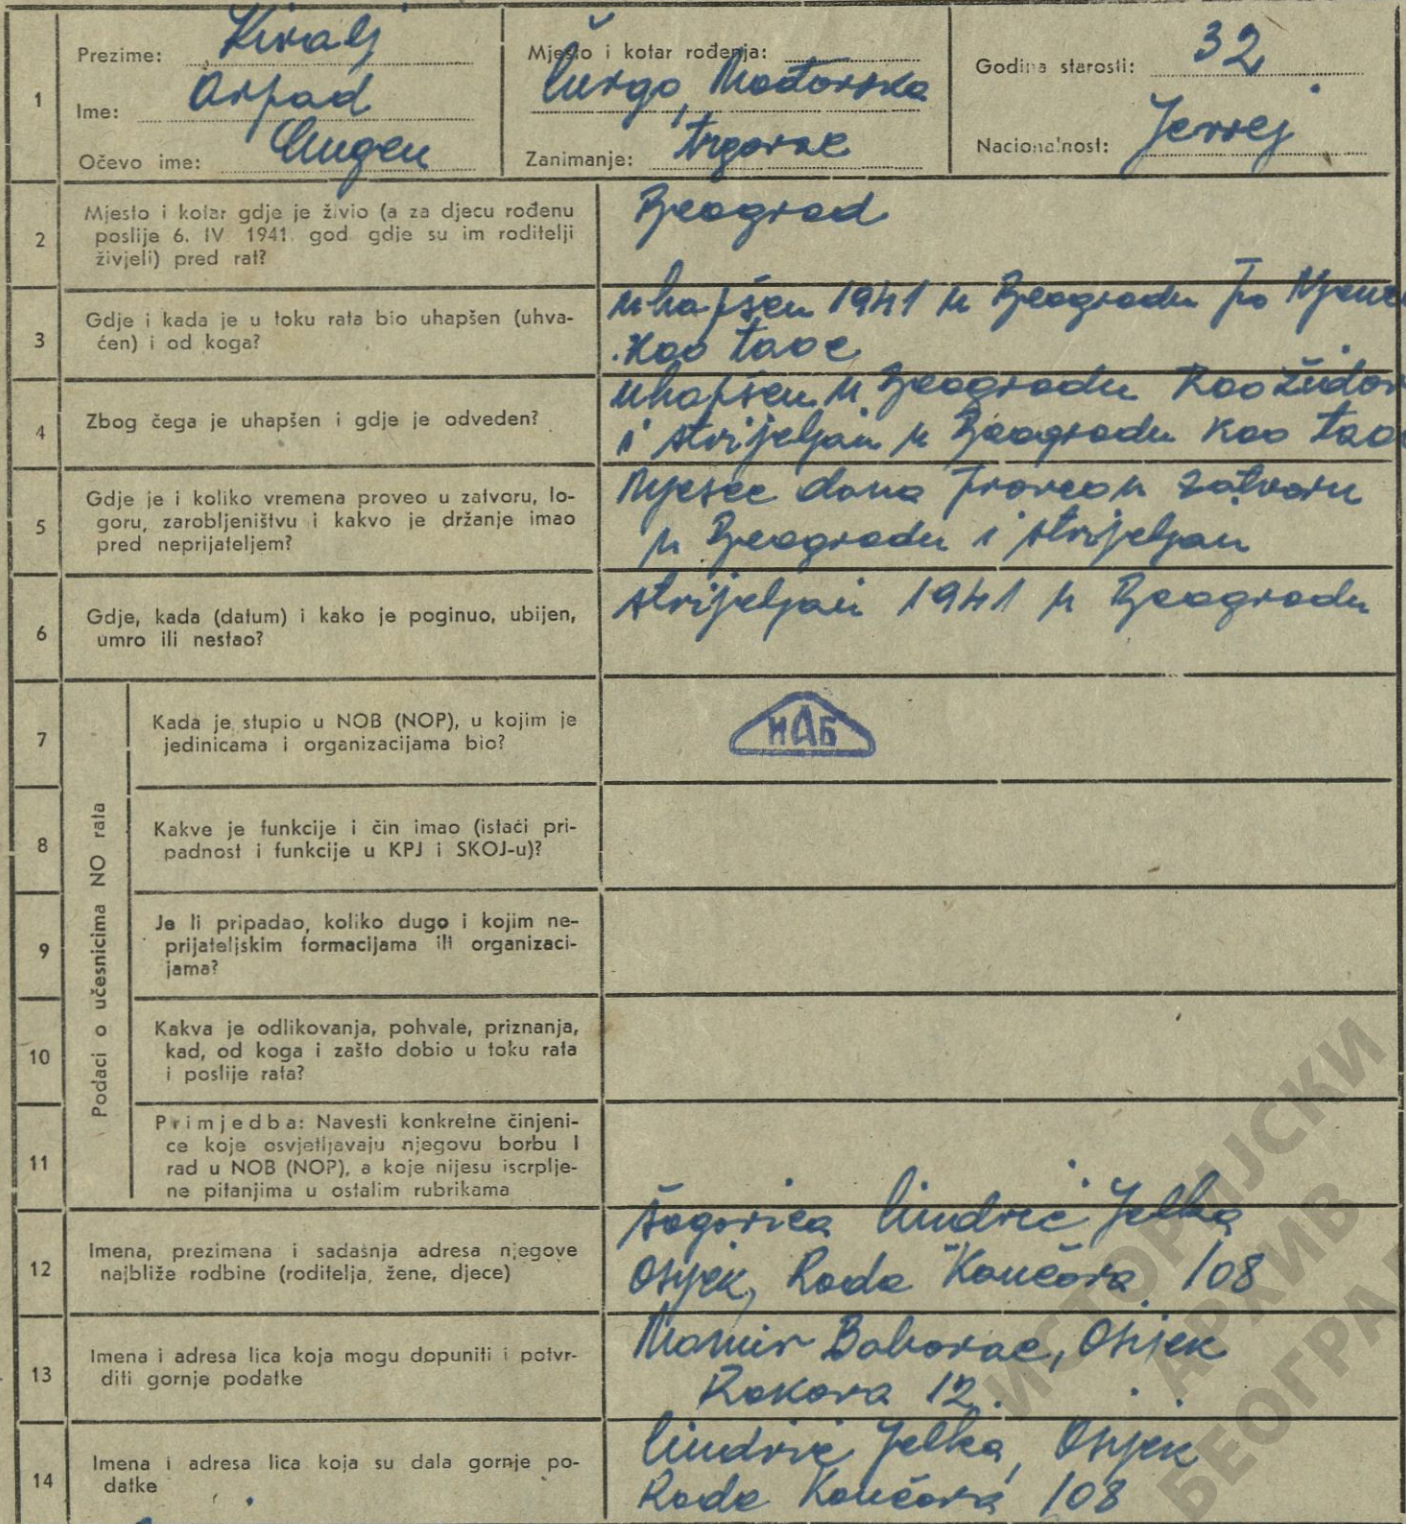 1
Prezime: Kiralj
Ime: Arpad
Očevo ime: Eugen
Mjesto i kotar rođenja:
Čurgo, Mađorska
Zanimanje: trgovac
Godina starosti: 32
Nacionalnost: Jevrej
2
Mjesto i kotar gdje je živio (a za djecu rođenu
poslije 6. IV 1941. god gdje su im roditelji
živjeli) pred rat?
Beograd
3
Gdje i kada je u toku rata bio uhapšen (uhva-
ćen) i od koga?
uhapšen 1941 u Beogradu po
kao taoc
4
Zbog čega je uhapšen i gdje je odveden?
uhapšen u Beogradu kao Židov
i strijeljan u Beogradu kao taoc
5
Gdje je i koliko vremena proveo u zatvoru, lo-
goru, zarobljeništvu i kakvo je držanje imao
pred neprijateljem?
Mjesec dana proveo u zatvoru
u Beogradu i strijeljan
6
Gdje, kada (datum) i kako je poginuo, ubijen,
umro ili nestao?
strijeljan 1941 u Beogradu
Podaci o učesnicima NO rata
7
Kada je stupio u NOB (NOP), u kojim je
jedinicama i organizacijama bio?
ИАБ
8
Kakve je funkcije i čin imao (istaći pri-
padnost i funkcije u KPJ i SKOJ-u)?
9
Je li pripadao, koliko dugo i kojim ne-
prijateljskim formacijama ili organizaci-
jama?
10
Kakva je odlikovanja, pohvale, priznanja,
kad, od koga i zašto dobio u toku rata
i poslije rata?
11
Primjedba: Navesti konkretne činjeni-
ce koje osvjetljavaju njegovu borbu i
rad u NOB (NOP), a koje nijesu iscrplje-
ne pitanjima u ostalim rubrikama
12
Imena, prezimena i sadašnja adresa njegove
najbliže rodbine (roditelja, žene, djece)
šogorica Cindrić Jelka
Osijek, Rade Končara 108
13
Imena i adresa lica koja mogu dopuniti i potvr-
diti gornje podatke
Osijek
12.
14
Imena i adresa lica koja su dala gornje po-
datke
Cindrić Jelka, Osijek
Rade Končara 108
ИСТОРИЈСКИ
АРХИВ
БЕОГРА